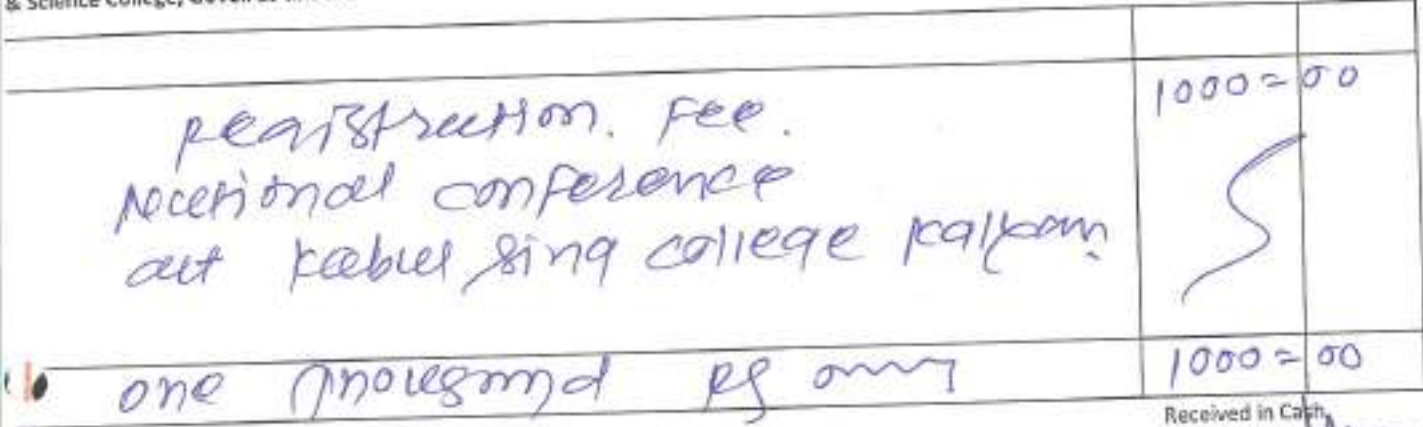 & Science College,
1000=00
Registration. Fee.
National conference
at Kabul sing college Kalyan.
one thousand Rs only 1000=00
Received in Cash,